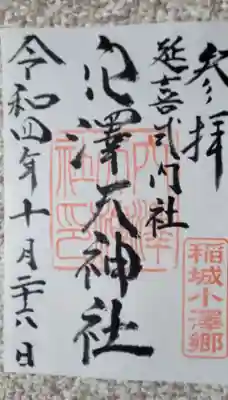 参拝
延喜式内社
穴澤天神社
令和四年十月二十六日
稲城小澤郷